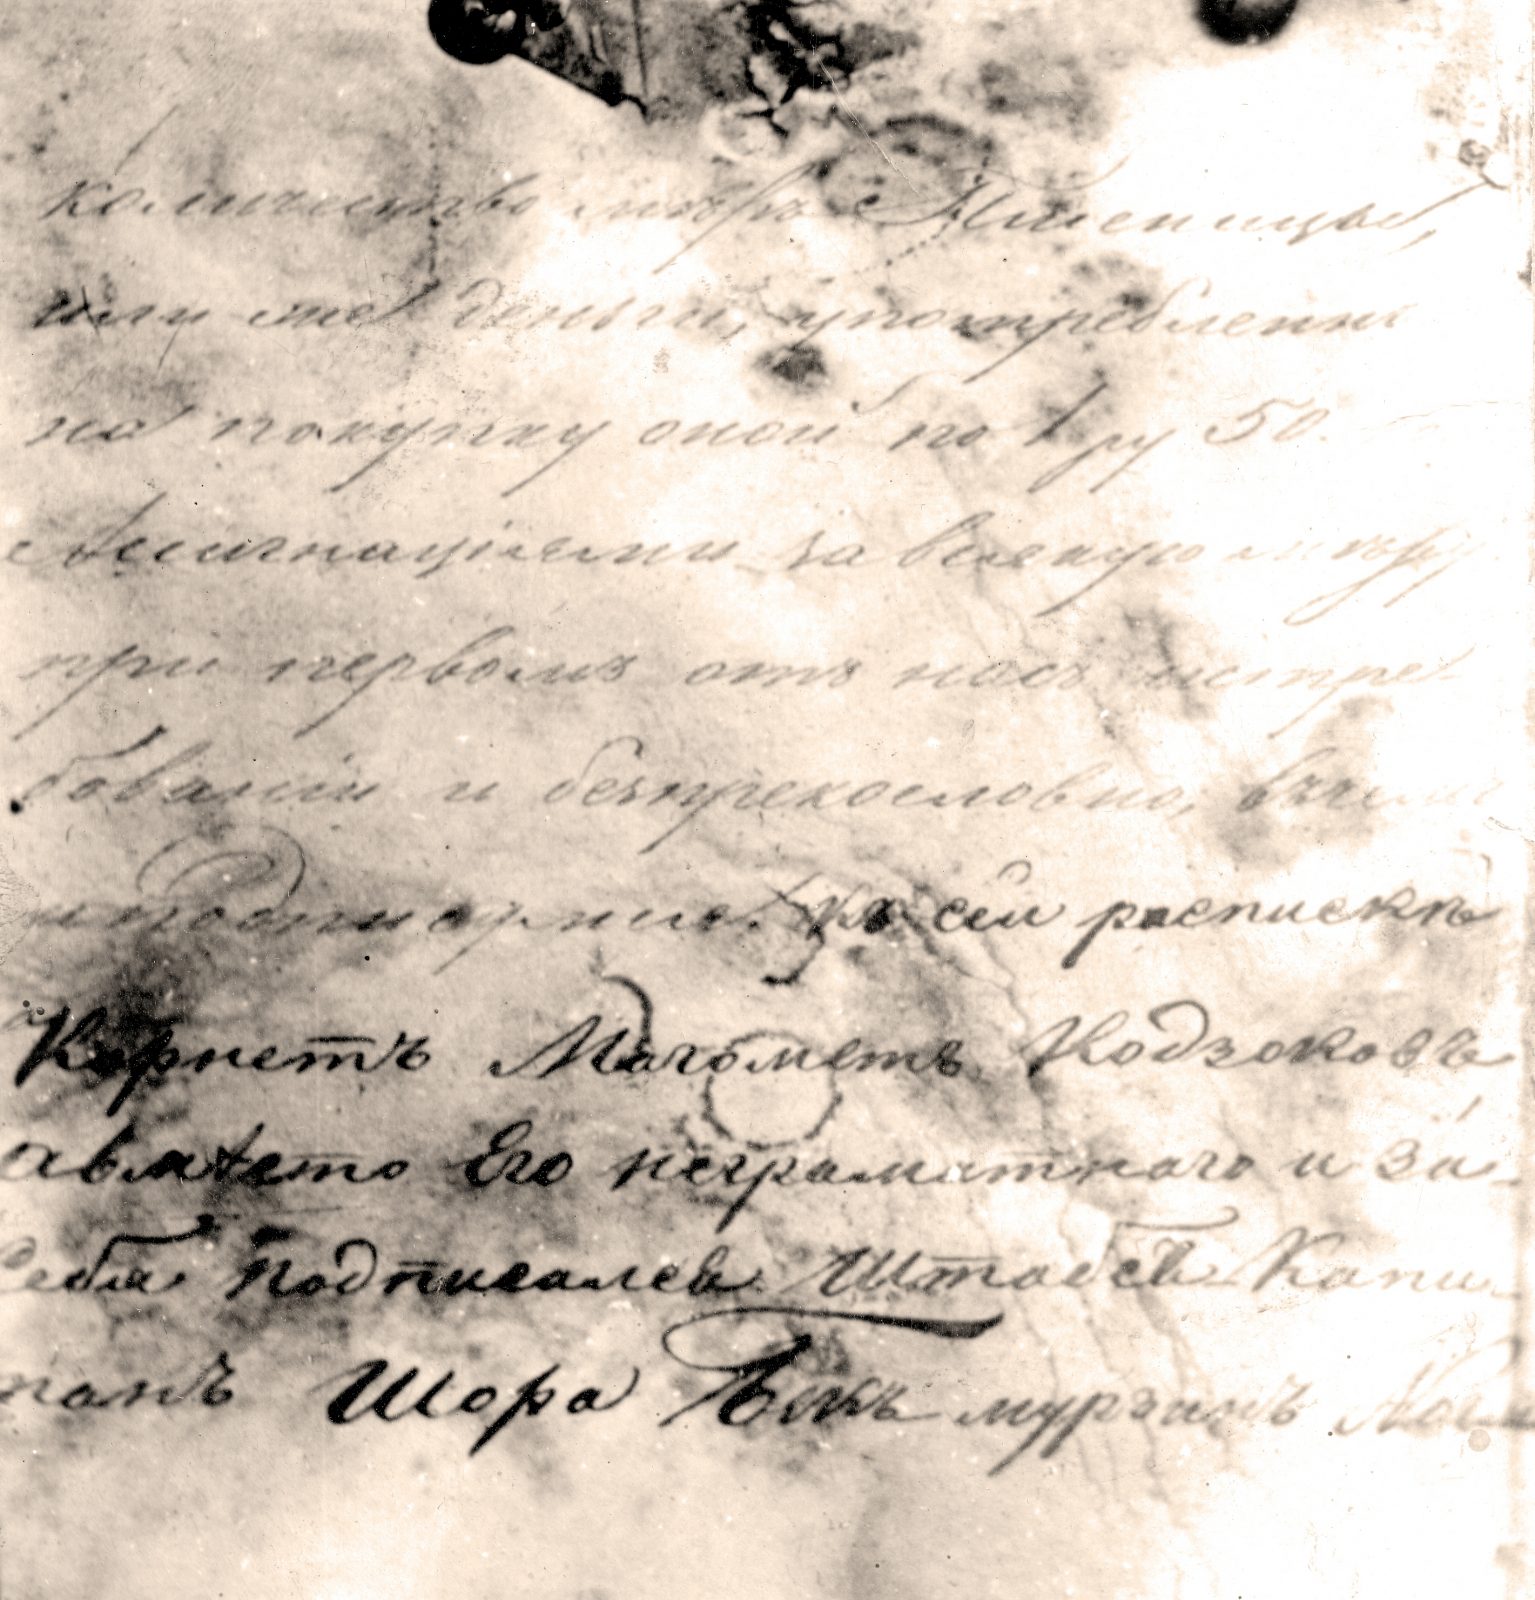 количество мѣръ Пшеницы,
или же деньги, употребленны
на покупку оной по 1 ру 50.
Ассигнаціями за всякую мѣру
при первомъ отъ насъ истре
бованіи и безпрекословно, въ чемъ
и подписуемся. Къ сей роспискѣ
Корнетъ Магометъ Кодзоковъ
авмѣсто Его неграматнаго и за
Себя подписался Штабсъ Капи
танъ Шора Бекъ мурзинъ